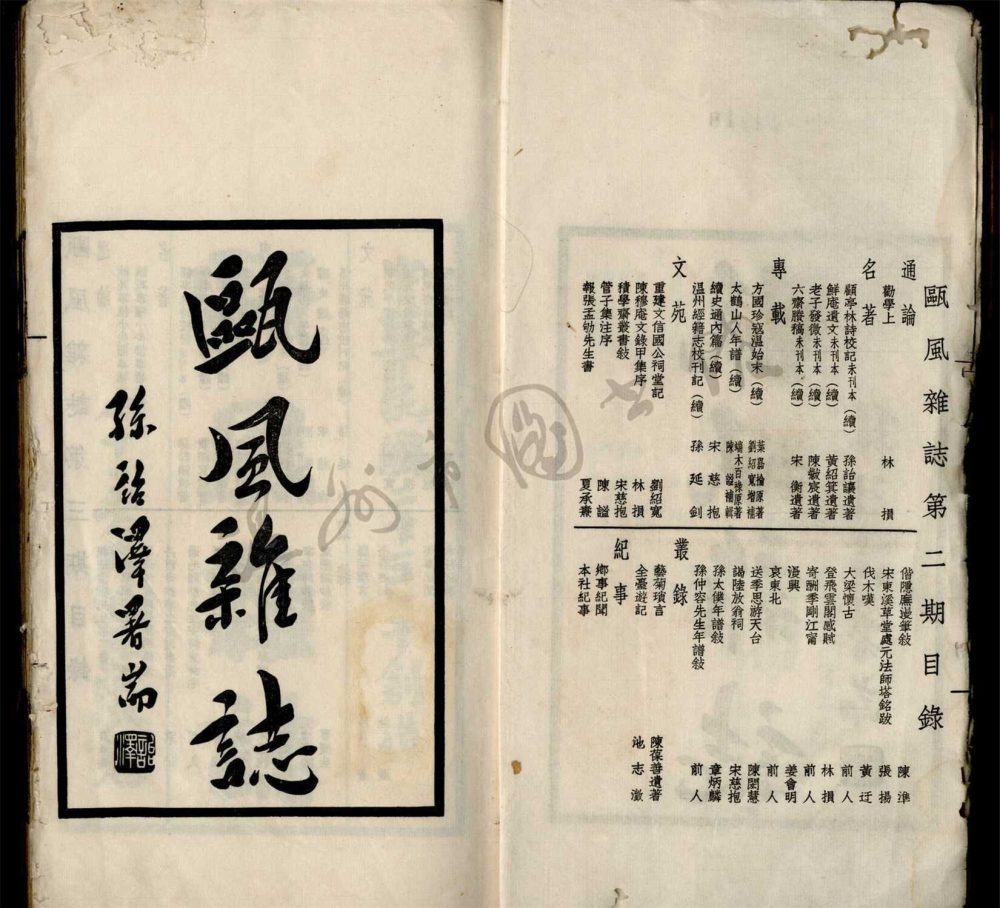 甌風雜誌第二期目錄
通論
勸學上 林損
名著
顧亭林詩校記未刊本(續) 孫詒讓遺著
鮮庵遺文未刊本(續) 黃紹箕遺著
老子發微未刊本(續) 陳黻宸遺著
六齋賸稿未刊本(續) 宋衡遺著
專載
方國珍寇溫始末(續) 葉嘉棆原著 劉紹寬增補
太鶴山人年譜(續) 端木百祿原著 陳謐補輯
續史通內篇(續) 宋慈抱
溫州經籍志校刊記(續) 孫延釗
文苑
重建文信國公祠堂記 劉紹寬
陳穆庵文錄甲集序 林損
積學齋叢書敍 宋慈抱
管子集注序 陳謐
報張孟劬先生書 夏承燾
偕隱廬漫筆敍 陳準
宋東溪草堂處元法師塔銘跋 張揚
伐木嘆 黃迂
大梁懷古 前人
登飛雲閣感賦 林損
寄酬季剛江甯 前人
漫興 姜會明
哀東北 前人
送季思游天台 陳閎慧
謁陸放翁祠 宋慈抱
孫太僕年譜敍 章炳麟
孫仲容先生年譜敍 前人
叢錄
藝菊瑣言 陳葆善遺著
全臺遊記 池志澂
紀事
鄉事紀聞
本社紀事
甌風雜誌
孫詒澤署耑
詒澤